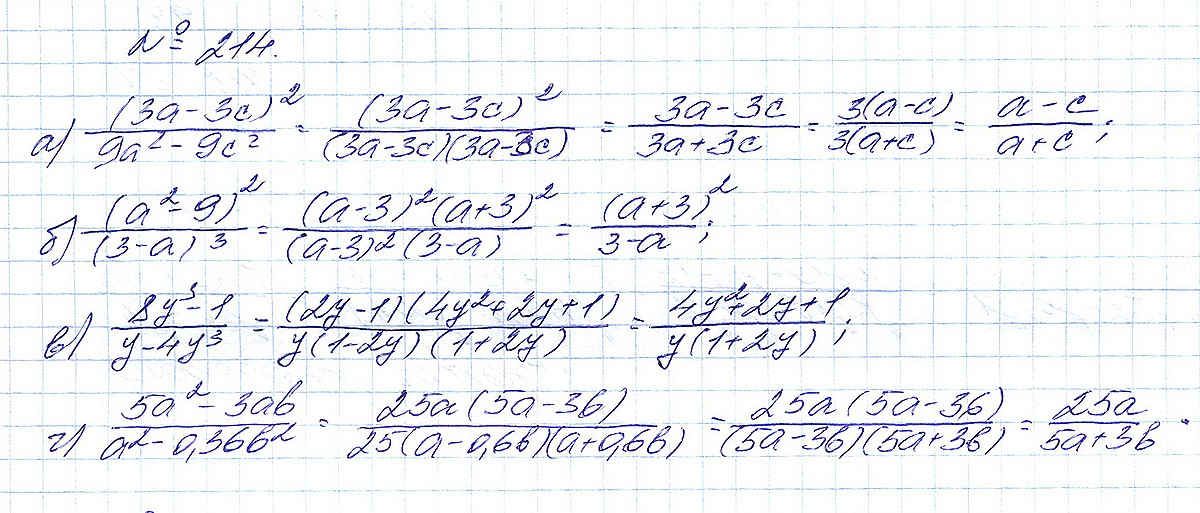 № 214.
а) (3a-3c)²/(9a²-9c²) = (3a-3c)²/((3a-3c)(3a-3c)) = (3a-3c)/(3a+3c) = 3(a-c)/3(a+c) = (a-c)/(a+c);
б) (a²-9)²/(3-a)³ = (a-3)²(a+3)²/((a-3)²(3-a)) = (a+3)²/(3-a);
в) (8y³-1)/(y-4y³) = (2y-1)(4y²+2y+1)/(y(1-2y)(1+2y)) = (4y²+2y+1)/(y(1+2y));
г) (5a²-3ab)/(a²-0,36b²) = 25a(5a-3b)/(25(a-0,6b)(a+0,6b)) = 25a(5a-3b)/((5a-3b)(5a+3b)) = 25a/(5a+3b).